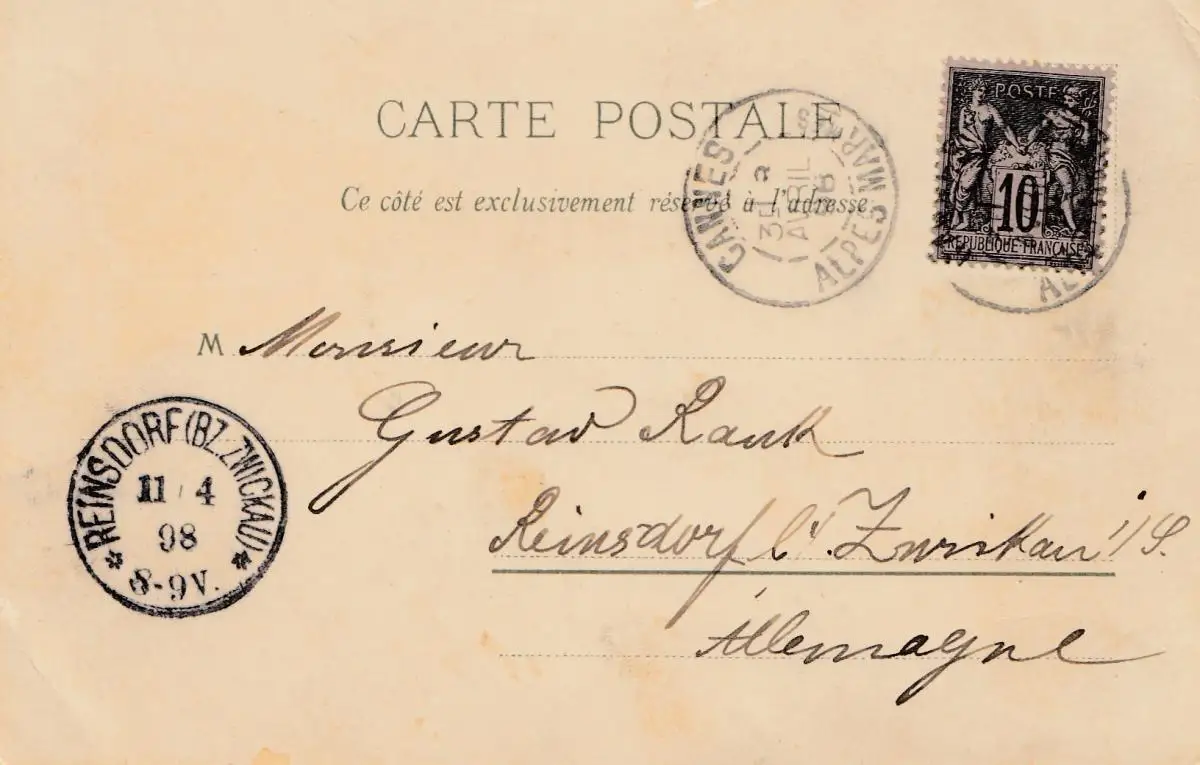 CARTE POSTALE
Ce côté est exclusivement réservé à l'adresse
POSTE
10
REPUBLIQUE FRANÇAISE
CANNES
AVRIL
98
ALPES MARIT
M Monsieur
Gustav Rauk
Reinsdorf b/ Zwickau i/S.
Allemagne
REINSDORF (BZ. ZWICKAU)
11 4
98
8-9V.